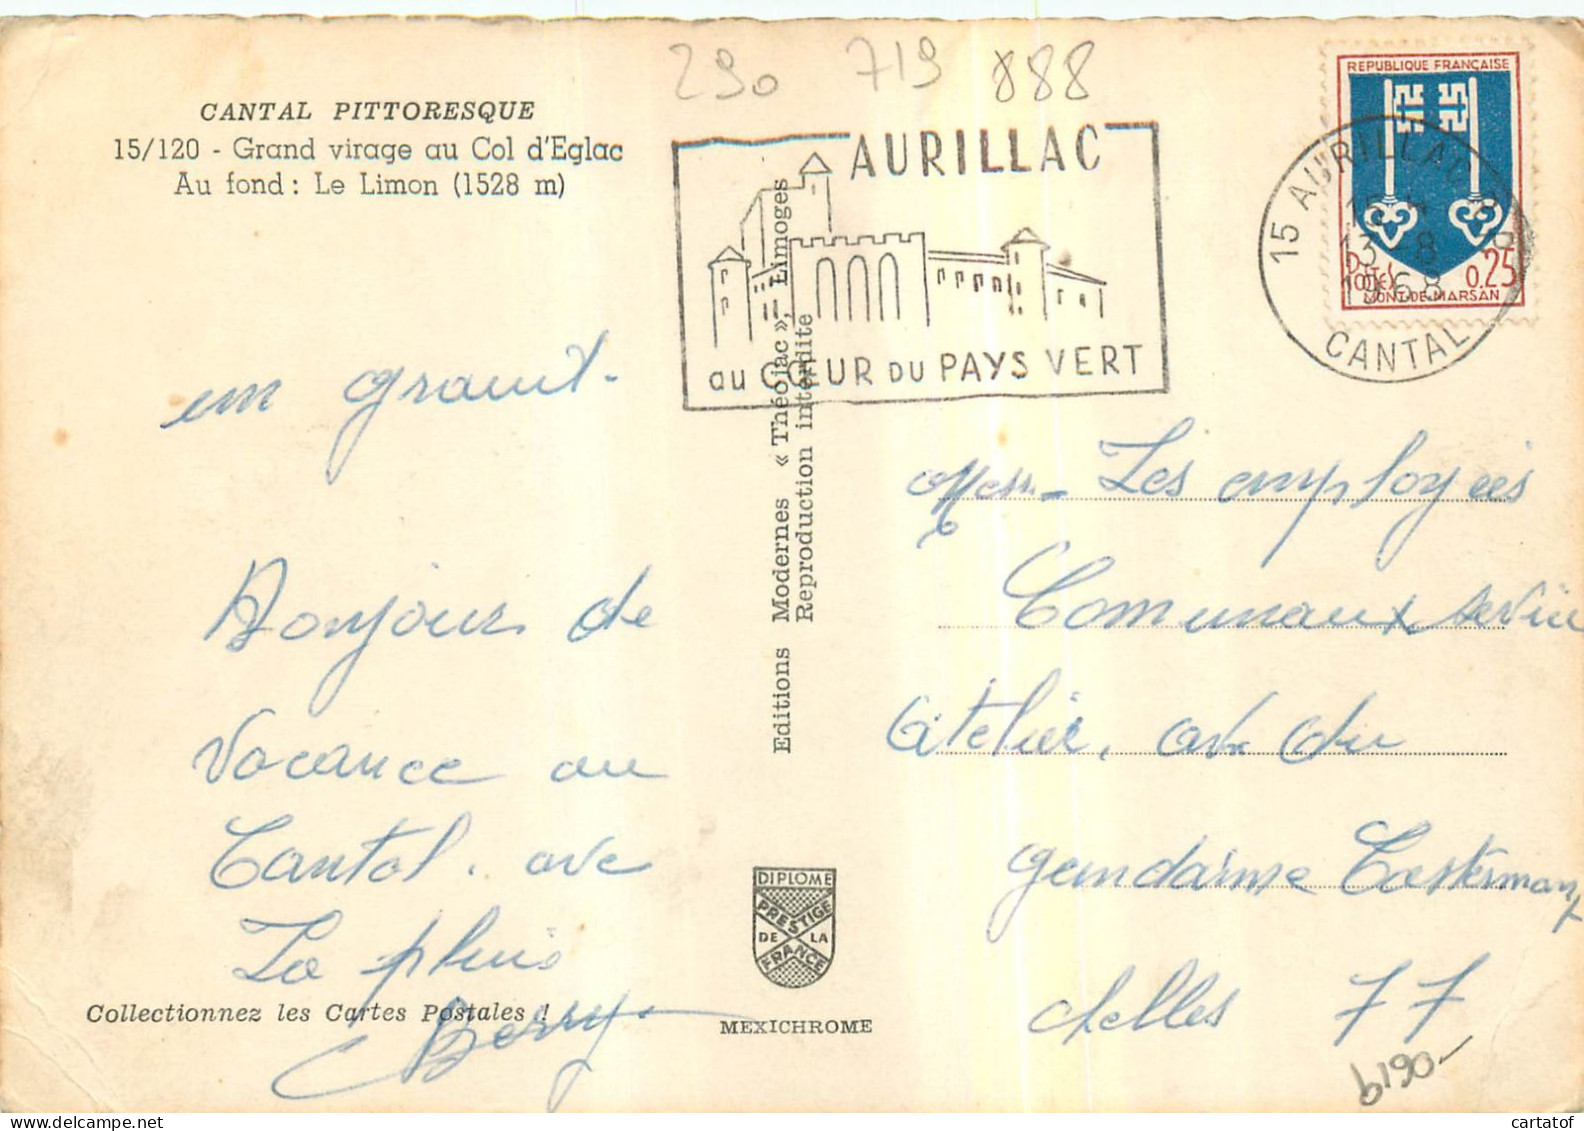 290 719 888
CANTAL PITTORESQUE
15/120 - Grand virage au Col d'Eglac
Au fond : Le Limon (1528 m)
AURILLAC
au CŒUR DU PAYS VERT
REPUBLIQUE FRANÇAISE
0.25
MONT-DE-MARSAN
15 AURILLAC
13 -8
1968
CANTAL
en granit.
Bonjour de
Vacance au
Cantal. avec
La pluie
Berry
Collectionnez les Cartes Postales !
Editions Modernes « Théojac », Limoges
Reproduction interdite
DIPLOME
PRESTIGE
DE LA
FRANCE
MEXICHROME
Les employées
Communaux service
Atelier, av. du
gendarme Casterman
chelles 77
6190-
cartatof